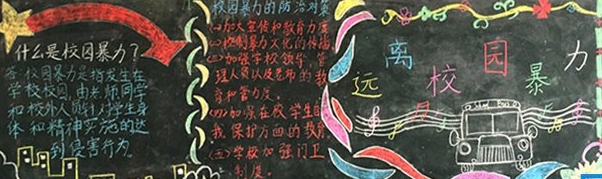 什么是校园暴力？
答：校园暴力是指发生在
学校校园，由老师同学
和校外人员针对学生身
体和精神实施的达
到侵害行为。
校园暴力的防治对策
(一)加大宣传和教育力度
(二)控制暴力文化的传播
(三)加强学校领导、管
理人员以及老师的教
育和管力度。
(四)加强在校学生自
我保护方面的教育
(五)学校加强门卫
制度。
远离校园暴力